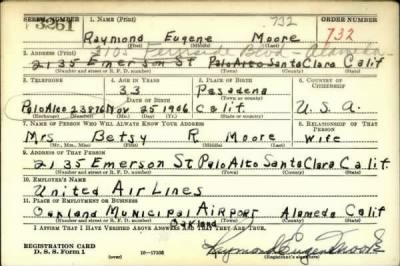 SERIAL NUMBER 1. NAME (Print) 732 ORDER NUMBER
3261 Raymond Eugene Moore 732
(First) (Middle) (Last)
2. ADDRESS (Print) 2105 Fernside Blvd - Alameda -
2135 Emerson St Palo Alto Santa Clara Calif
(Number and street or R. F. D. number) (Town) (County) (State)
3. TELEPHONE 4. AGE IN YEARS 5. PLACE OF BIRTH 6. COUNTRY OF CITIZENSHIP
33 Pasadena
DATE OF BIRTH (Town or county)
Palo Alto 23876 Nov 25 1906 Calif. U.S.A.
(Exchange) (Number) (Mo.) (Day) (Yr.) (State or country)
7. NAME OF PERSON WHO WILL ALWAYS KNOW YOUR ADDRESS 8. RELATIONSHIP OF THAT PERSON
Mrs Betsy R Moore Wife
(Mr., Mrs., Miss) (First) (Middle) (Last)
9. ADDRESS OF THAT PERSON
2135 Emerson St Palo Alto Santa Clara Calif.
(Number and street or R. F. D. number) (Town) (County) (State)
10. EMPLOYER'S NAME
United AirLines
11. PLACE OF EMPLOYMENT OR BUSINESS
Oakland Municipal AIRPORT Alameda Calif
(Number and street or R. F. D. number) Oakland (Town) (County) (State)
I AFFIRM THAT I HAVE VERIFIED ABOVE ANSWERS AND THAT THEY ARE TRUE.
REGISTRATION CARD
D. S. S. Form 1 16-17105 Raymond Eugene Moore
(Registrant's signature)